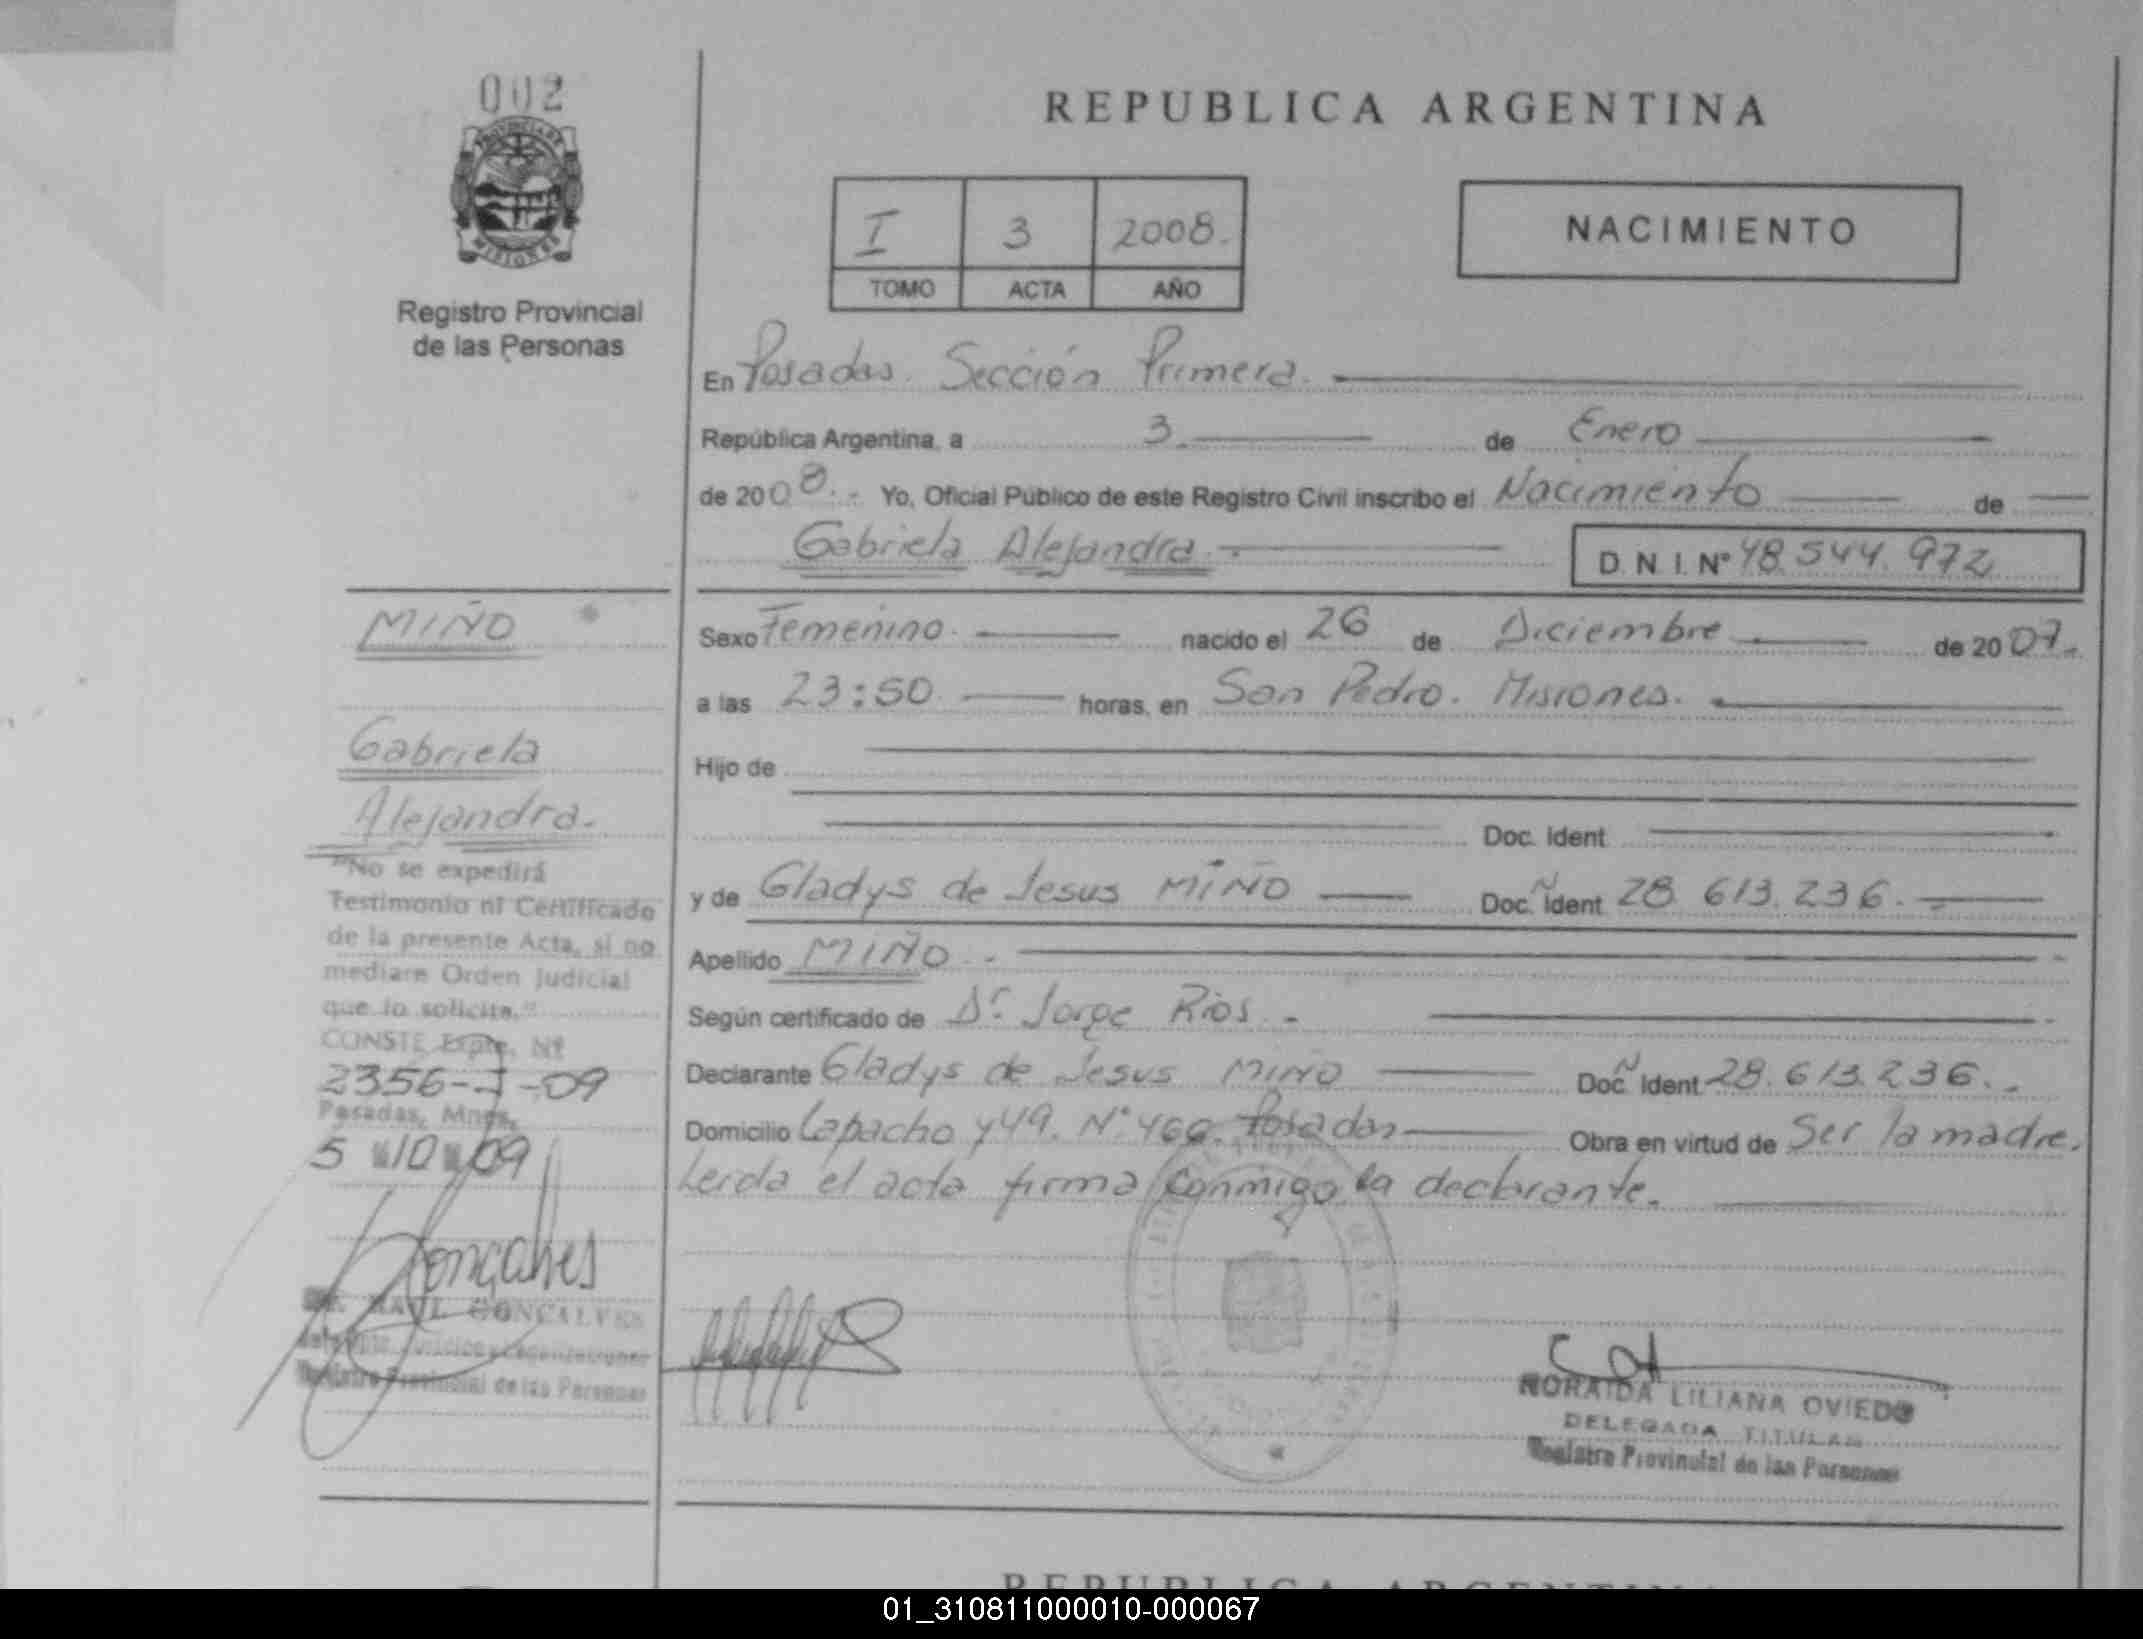 002
PROVINCIA DE
MISIONES
Registro Provincial
de las Personas
REPUBLICA ARGENTINA
I 3 2008.
TOMO ACTA AÑO
NACIMIENTO
En Posadas. Sección Primera.
República Argentina, a 3 de Enero
de 2008. Yo, Oficial Público de este Registro Civil inscribo el Nacimiento de
Gabriela Alejandra. D.N.I. Nº 48.544.972
Sexo Femenino. nacido el 26 de Diciembre de 2007.
a las 23:50 horas, en San Pedro. Misiones.
Hijo de
Doc. Ident.
y de Gladys de Jesus MIÑO Doc. Ident. 28.613.236.
Apellido MIÑO.
Según certificado de Dr. Jorge Rios.
Declarante Gladys de Jesus MIÑO Doc. Ident. 28.613.236.
Domicilio Lapacho y 49. Nº 466. Posadas Obra en virtud de Ser la madre.
Leida el acta firma conmigo la declarante.
MIÑO
Gabriela
Alejandra.
"No se expedirá
Testimonio ni Certificado
de la presente Acta, si no
mediare Orden Judicial
que lo solicite."
CONSTE Expte. Nº
2356-J-09
Posadas, Mnes,
5 10 09
Gonçalves
RAUL GONCALVES
Registro Provincial de las Personas
NORAIDA LILIANA OVIEDO
DELEGADA TITULAR
Registro Provincial de las Personas
REPUBLICA ARGENTINA
01_310811000010-000067